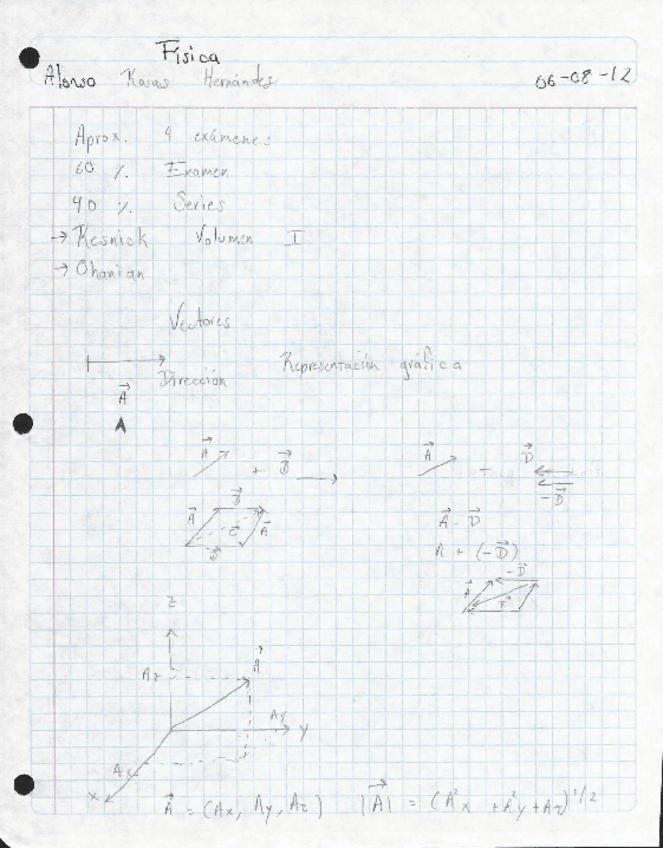 Física
Alonso Hernández 06-08-12
Aprox. 4 exámenes
60 % Examen
40 % Series
→ Resnick Volumen I
→ Ohanian
Vectores
Dirección Representación gráfica
A
A
A + B A - D
-D
B
A C A
B
A - D
A + (-D)
-D
A
Z
Az A
Ay Y
Ax
X
A = (Ax, Ay, Az) |A| = (A²x + A²y + Az)^1/2